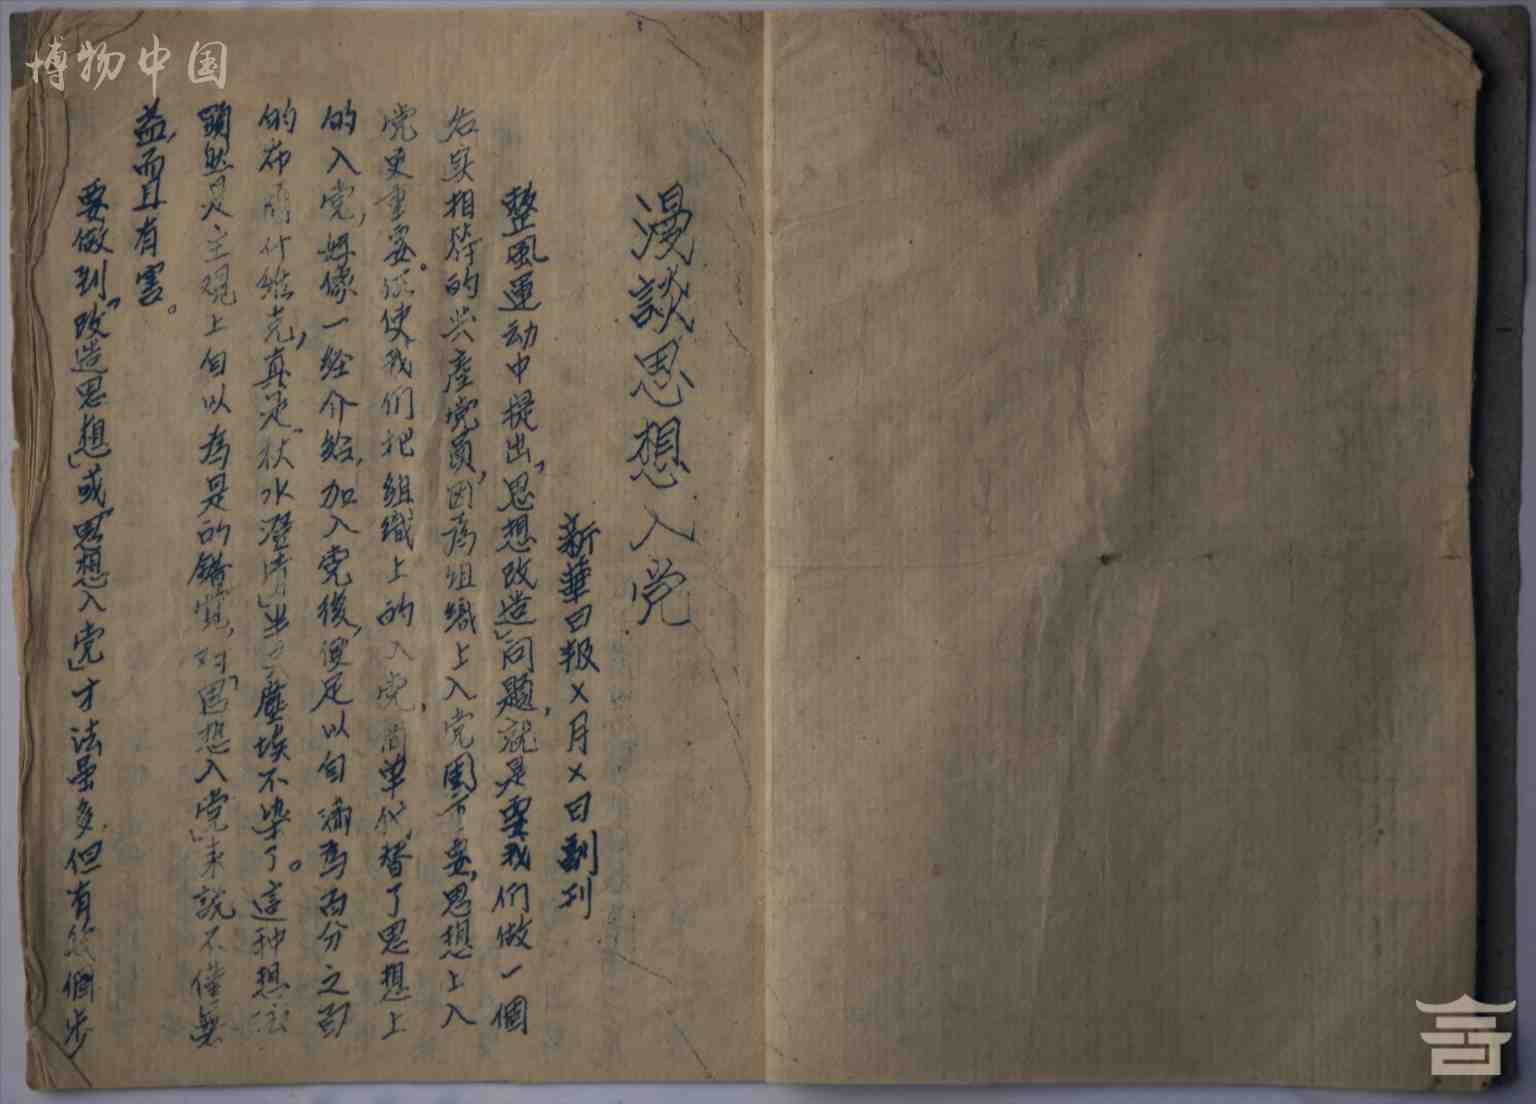 漫談思想入党
新華日報×月×日副刊
整風運动中提出“思想改造”问题，就是要我们做一個
名实相符的共產党員，因為组織上入党固重要，思想上入
党更重要。从使我们把组織上的入党，簡单代替了思想上
的入党，好像一经介紹，加入党後，便足以自滿為百分之百
的布尔什维克，真是“秋水澄清”塵埃不染了。這种想法
顕然是主观上自以為是的錯覚，对“思想入党”来説不僅無
益，而且有害。
要做到“改造思想”或“思想入党”才法虽多，但有幾個步
博物中国